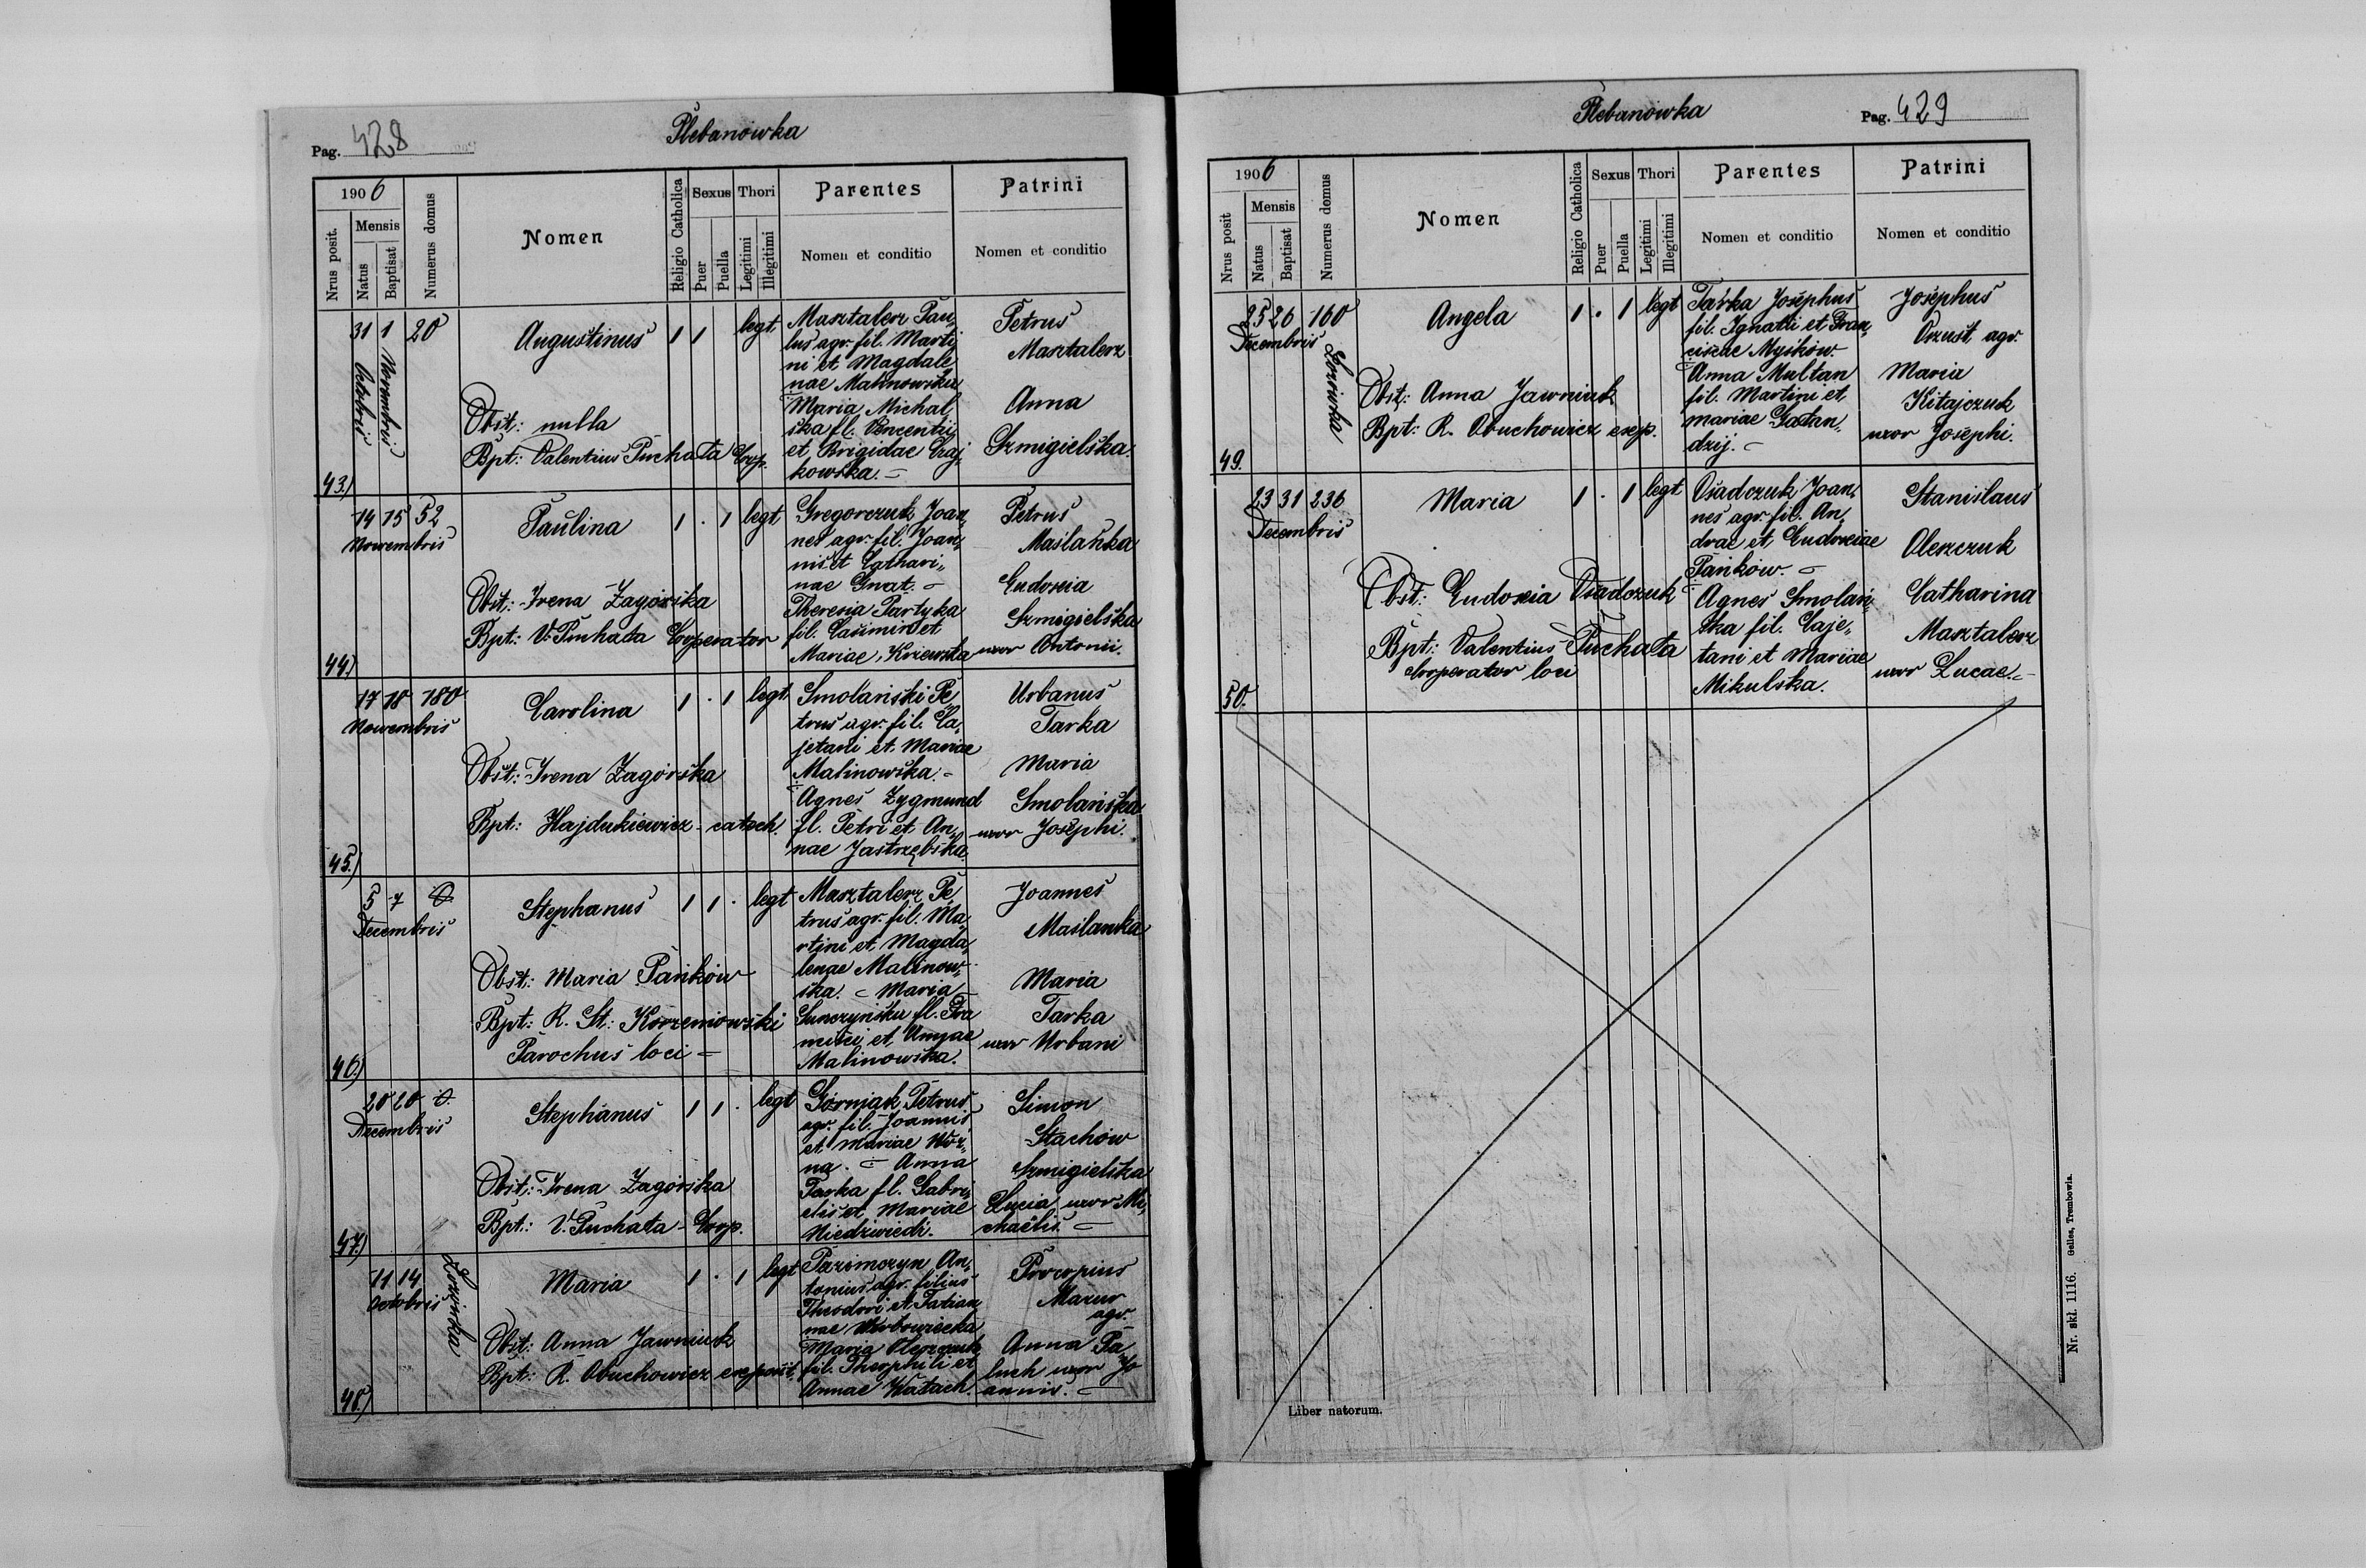 Pag. 428
Plebanówka
1906
Nrus posit.
Mensis
Natus
Baptisat
Numerus domus
Nomen
Religio Catholica
Sexus
Puer
Puella
Thori
Legitimi
Illegitimi
Parentes
Nomen et conditio
Patrini
Nomen et conditio
43.)
31 1 20
Octobris
Novembris
Augustinus
1 1 legt
Obst: nulla
Bpt: Valentius Puchała Coop.
Masztalerz Pau„
lus agr. fil. Marti„
ni et Magdale„
nae Malinowska
Maria Michal„
ska fl. Vincentii
et Brigidae
kowska. –
Petrus
Masztalerz
Anna
Szmigielska.
44.)
14 15 52
Novembris
Paulina
1 . 1 legt
Obst: Irena Zagórska
Bpt: V. Puchała Cooperator
Gregorczuk Joan„
nes agr. fil. Joan„
nis et Cathari„
nae Gnat. –
Theresia Partyka
fil. Casimiri et
Mariae
Petrus
Maślanka
Eudoxia
Szmigielska
uxor Antonii.
45.)
17 18 180
Novembris
Carolina
1 . 1 legt
Obst: Irena Zagórska
Bpt: Hajdukiewicz – catech.
Smolański Pe„
trus agr. fil. Ca„
jetani et Mariae
Malinowska. –
Agnes Zygmund
fl. Petri et An„
nae Jastrzębska.
Urbanus
Tarka
Maria
Smolańska
uxor Josephi.
46.)
5 7
Decembris
Stephanus
1 1 . legt
Obst: Maria Pańków
Bpt: R. St: Korzeniowski
Parochus loci –
Masztalerz Pe„
trus agr. fil. Ma„
rtini et Magda„
lenae Malinow„
ska. – Maria
fl. Fra
ncisci et Annae
Malinowska.
Joannes
Maślanka
Maria
Tarka
uxor Urbani
47.)
20 20
Decembris
Stephanus
1 1 . legt
Obst: Irena Zagórska
Bpt: V. Puchała – Coop.
Górniak Petrus
agr. fil. Joannis
et Mariae Woź„
na. – Anna
Tarka fl. Gabri„
elis et Mariae
Niedźwiedź.
Simon
Stachów
Szmigielska
Lucia uxor Mi„
chaëlis. –
48.)
11 14
Octobris
Łoziówka
Maria
1 . 1 legt
Obst: Anna Jawniuk
Bpt: R. Obuchowicz exposit.
An„
tonius agr. filius
Theodori et Tatian
nae Wierbowiecka
Maria Oleszczuk
fil. Theophili et
Annae Watach.
Procopius
Mazur
agr.
Anna Pa„
luch uxor Jo
annis. –
Plebanówka
Pag. 429
1906
Nrus posit
Mensis
Natus
Baptisat
Numerus domus
Nomen
Religio Catholica
Sexus
Puer
Puella
Thori
Legitimi
Illegitimi
Parentes
Nomen et conditio
Patrini
Nomen et conditio
49.
25 26 160
Decembris
Łoziówka
Angela
1 . 1 legt
Obst: Anna Jawniuk
Bpt: R. Obuchowicz exp.
Tarka Josephus
fil. Ignatii et Fran„
ciscae Myśków.
Anna Multan
fil. Martini et
Mariae Gatan„
dzij. –
Josephus
Orzust agr.
Maria
Kitajczuk
uxor Josephi.
50.
23 31 236
Decembris
Maria
1 . 1 legt
Obst: Eudoxia Osadczuk
Bpt: Valentius Puchała
Cooperator loci
Osadczuk Joan„
nes agr. fil. An„
dreae et Eudoxiae
Pańków. –
Agnes Smolań„
ska fil. Caje„
tani et Mariae
Mikulska.
Stanislaus
Oleszczuk
Catharina
Masztalerz
uxor Lucae. –
Liber natorum.
Nr. skł. 1116. Gelles, Trembowla.